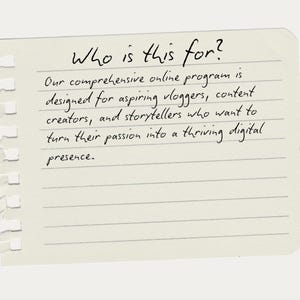 Who is this for?
Our comprehensive online program is
designed for aspiring vloggers, content
creators, and storytellers who want to
turn their passion into a thriving digital
presence.